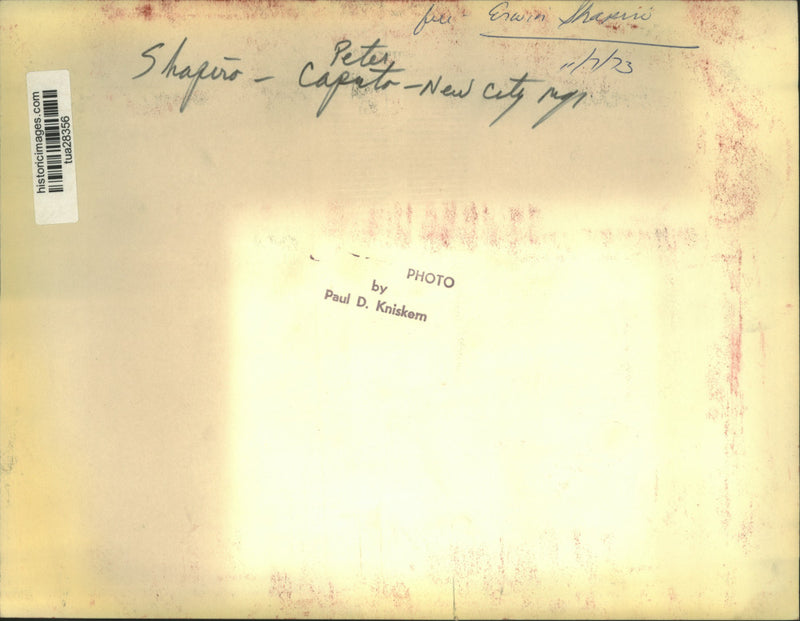 file Erwin Shapiro
11/7/73
Shapiro - Peter Caputo - New City Mgr
historicimages.com
tua28356
PHOTO
by
Paul D. Kniskern